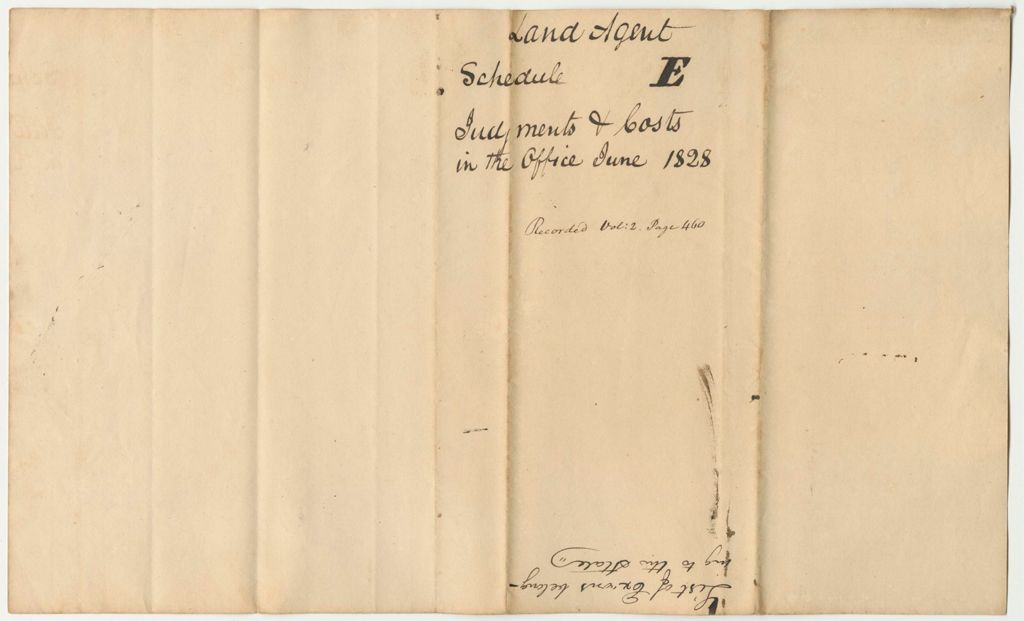 Land Agent
Schedule E
Judgments & Costs
in the Office June 1828
Recorded Vol: 2. Page 460
List of Ex'ons belong-
ing to this State